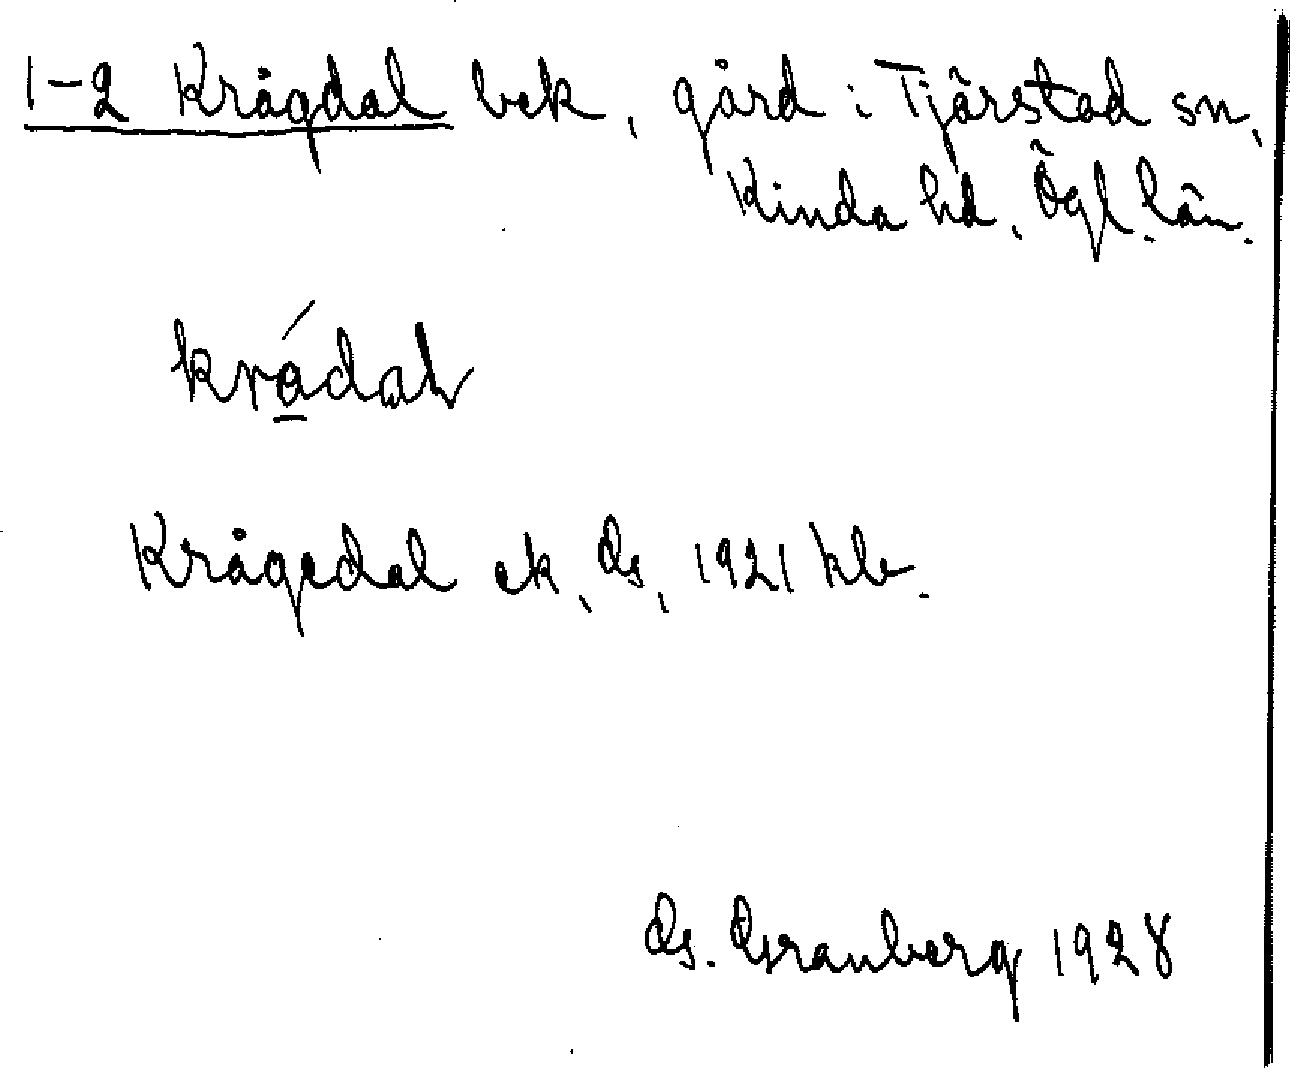 1-2 Krågdal bek, gård i Tjärstad sn,
Kinda hd, Ögl. län.
krá̱dal
Krågedal ek, Gs, 1921 kb.
G. Granberg 1928